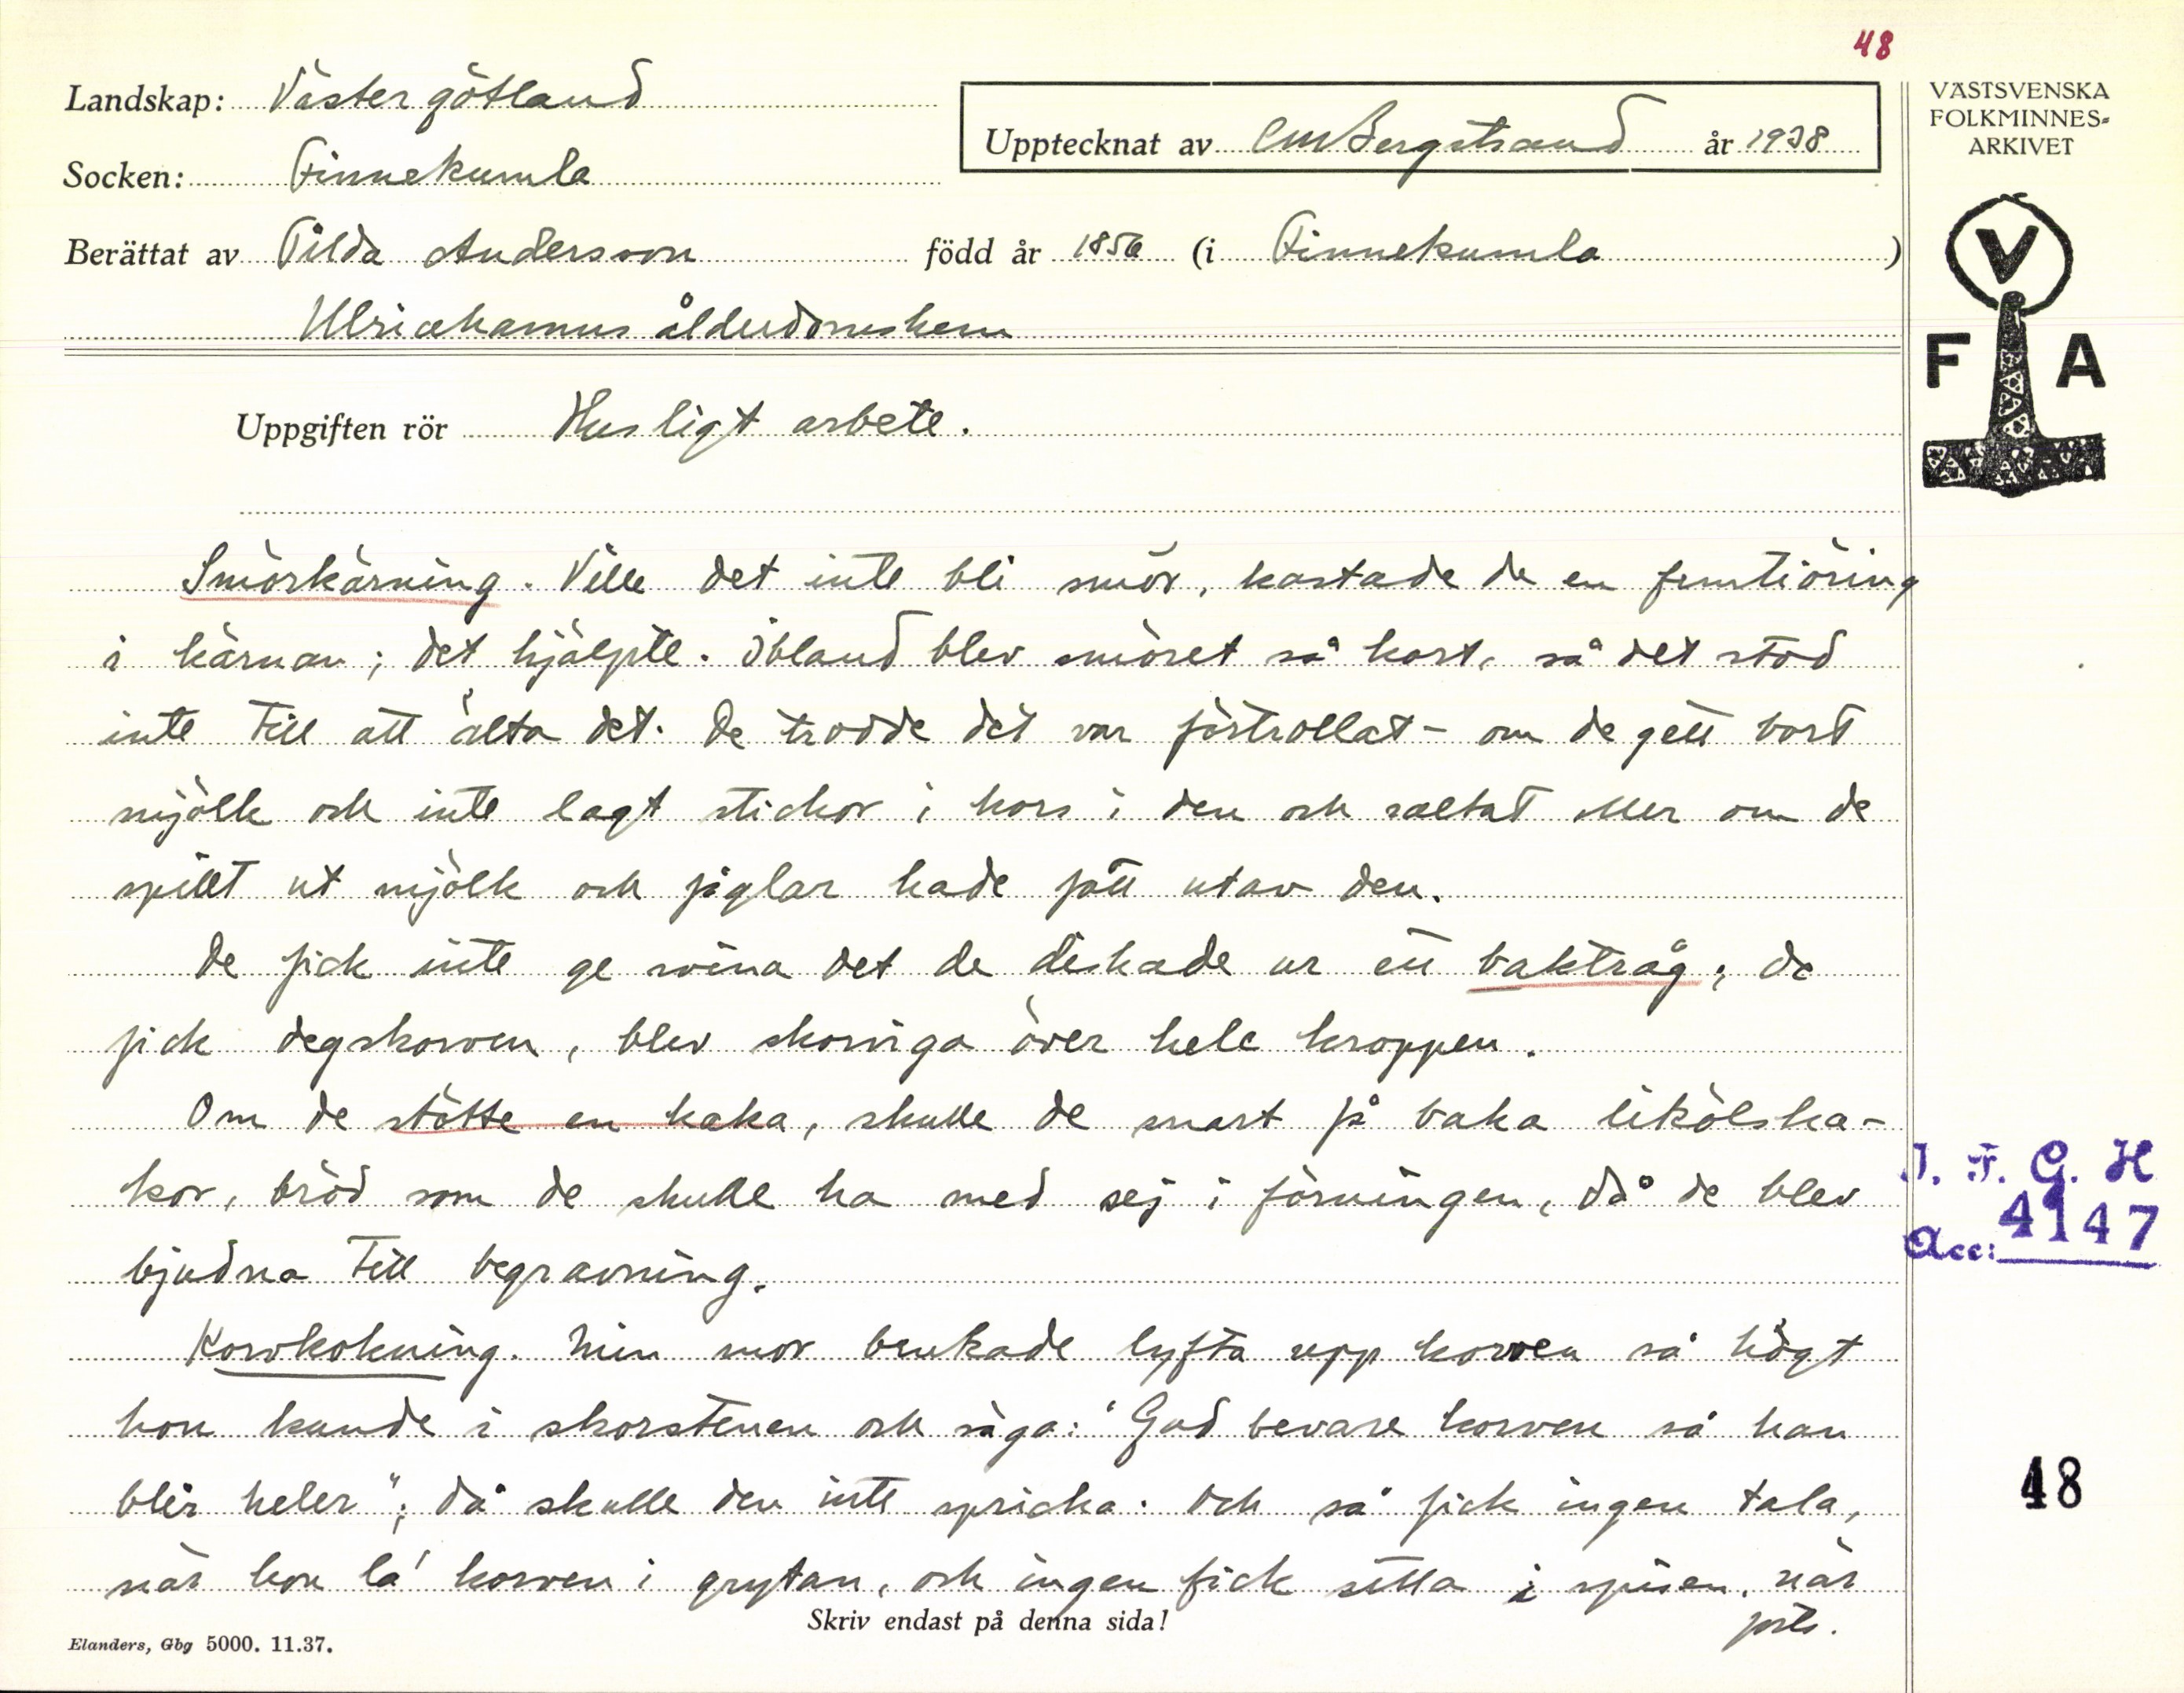 48
Landskap: Västergötland
Upptecknat av CM Bergstrand år 1938
VÄSTSVENSKA
FOLKMINNES-
ARKIVET
Socken: Finnekumla
Berättat av Tilda Andersson född år 1856 (i Finnekumla)
Ulricehamns ålderdomshem
V
F A
Uppgiften rör Husligt arbete.
Smörkärning. Ville det inte bli smör, kastade de en femtiöring
i kärnan; det hjälpte. Ibland blev smöret så kort, så det stod
inte till att älta det. De trodde det var förtrollat - om de gett bort
mjölk och inte lagt stickor i kors i den och saltat eller om de
spillt ut mjölk och fåglar hade fått utav den.
De fick inte ge svina det de diskade ur ett baktråg; de
fick degskorven, blev skorviga över hela kroppen.
Om de stötte en kaka, skulle de snart få baka likölska-
kor, bröd som de skulle ha med sej i förningen, då de blev
bjudna till begravning.
J. F. G. H
Acc: 4147
Korvkokning. Min mor brukade lyfta upp korven så högt
hon kunde i skorstenen och säga: "Gud bevare korven så han
blir heler"; då skulle den inte spricka. Och så fick ingen tala,
48
när hon la' korven i grytan, och ingen fick sitta i spisen, när
forts.
Skriv endast på denna sida!
Elanders, Gbg 5000. 11.37.